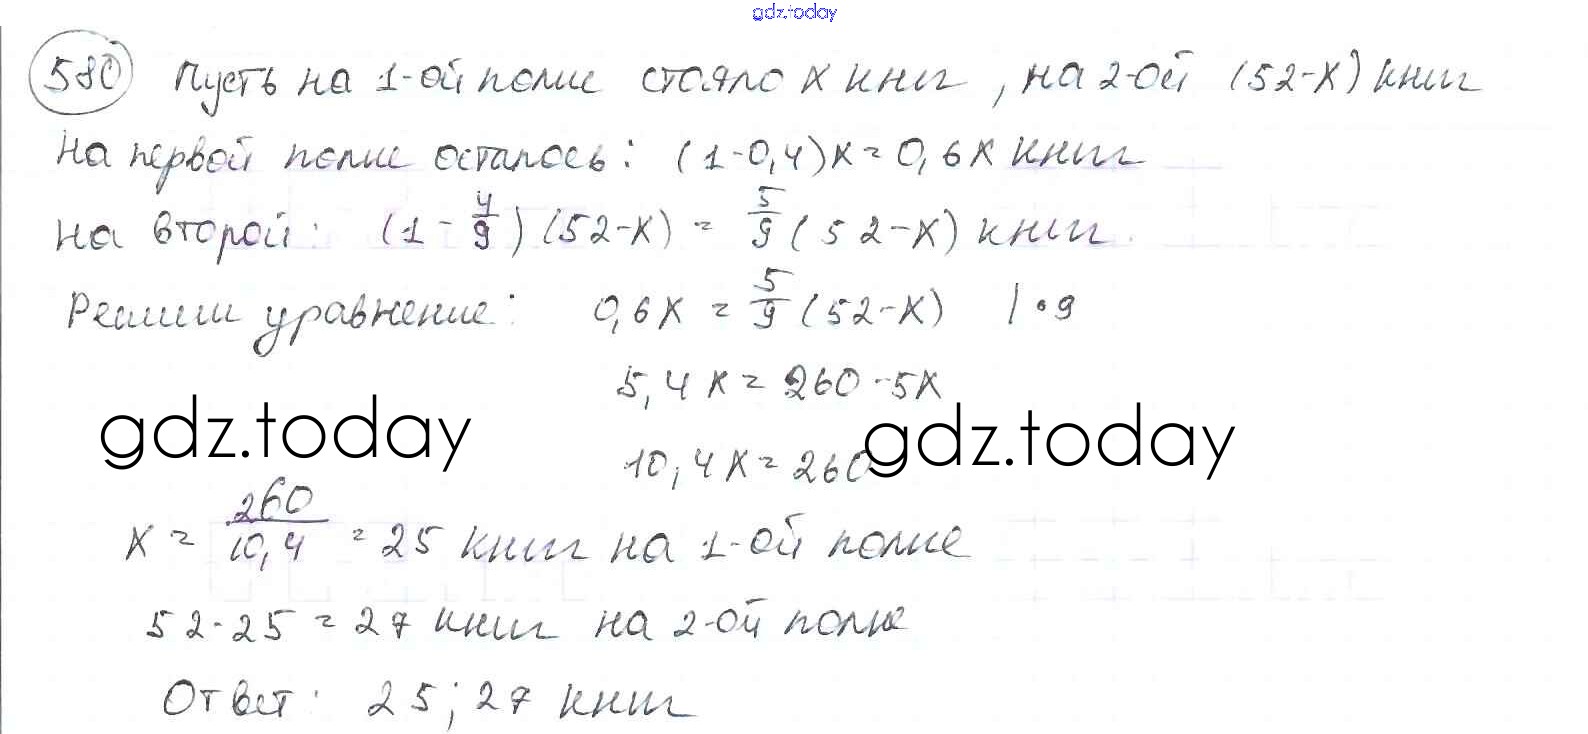 gdz.today
580 Пусть на 1-ой полке стояло x книг, на 2-ой (52-x) книг
На первой полке осталось: (1-0,4)x = 0,6x книг
На второй: (1 - 4/9)(52-x) = 5/9(52-x) книг.
Решим уравнение: 0,6x = 5/9(52-x) | •9
5,4x = 260-5x
gdz.today gdz.today
10,4x = 260
x = 260/10,4 = 25 книг на 1-ой полке
52-25 = 27 книг на 2-ой полке
Ответ: 25; 27 книг